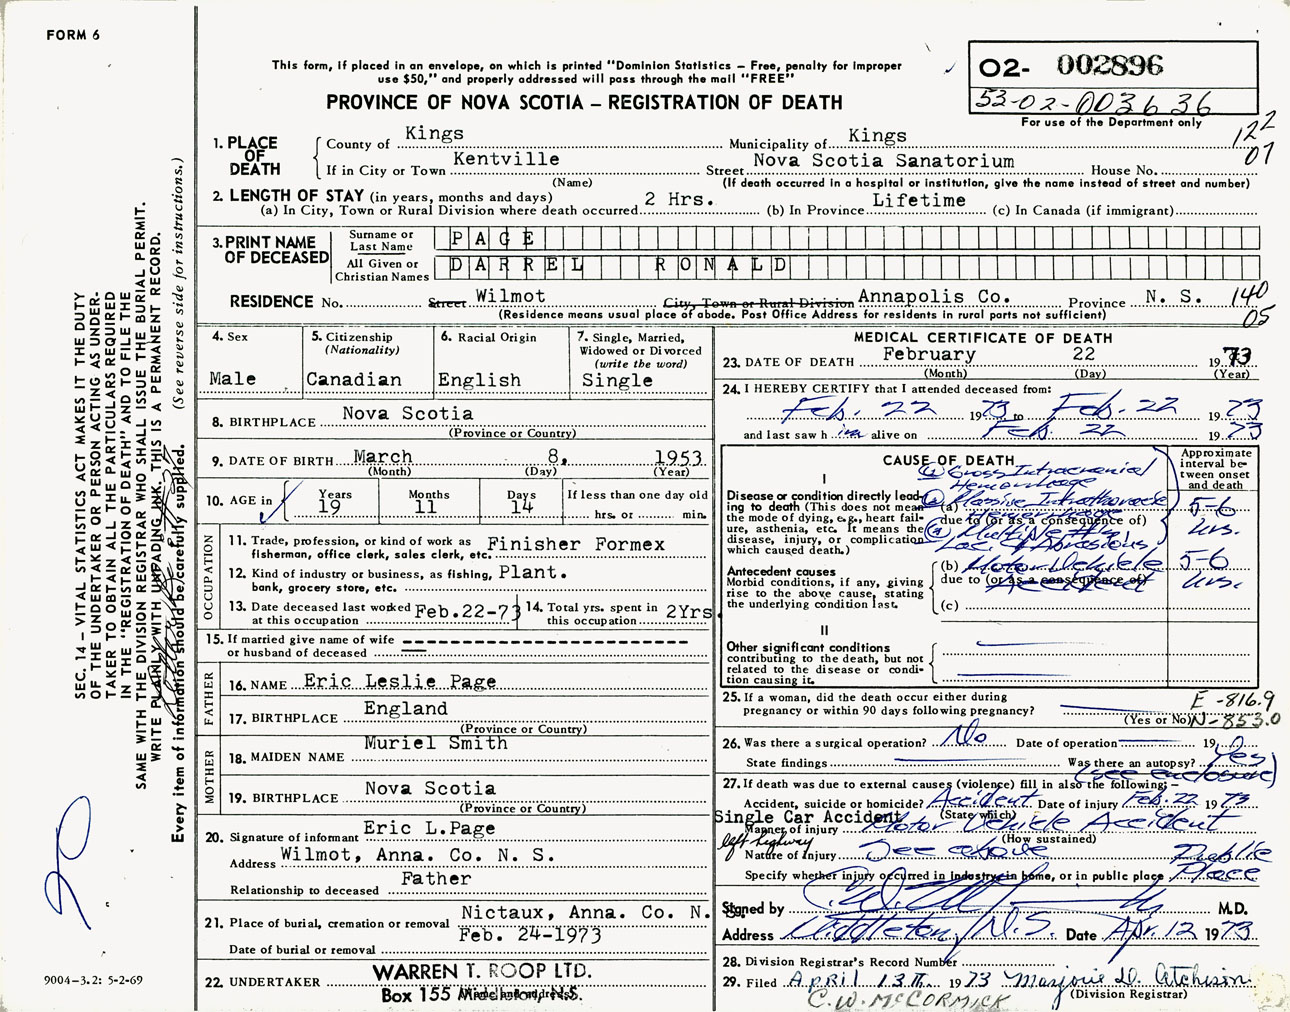 FORM 6
This form, if placed in an envelope, on which is printed "Dominion Statistics – Free, penalty for improper
use $50," and properly addressed will pass through the mail "FREE"
PROVINCE OF NOVA SCOTIA – REGISTRATION OF DEATH
02- 002896
53-02-003636
For use of the Department only
122
07
1. PLACE OF DEATH
County of Kings Municipality of Kings
If in City or Town Kentville Street Nova Scotia Sanatorium House No.
(Name) (If death occurred in a hospital or institution, give the name instead of street and number)
2. LENGTH OF STAY (in years, months and days)
(a) In City, Town or Rural Division where death occurred 2 Hrs. (b) In Province Lifetime (c) In Canada (if immigrant)
3. PRINT NAME OF DECEASED
Surname or Last Name PAGE
All Given or Christian Names DARREL RONALD
RESIDENCE No. Street Wilmot City, Town or Rural Division Annapolis Co. Province N. S. 140
05
(Residence means usual place of abode. Post Office Address for residents in rural parts not sufficient)
4. Sex
Male
5. Citizenship
(Nationality)
Canadian
6. Racial Origin
English
7. Single, Married,
Widowed or Divorced
(write the word)
Single
8. BIRTHPLACE Nova Scotia
(Province or Country)
9. DATE OF BIRTH March 8, 1953
(Month) (Day) (Year)
10. AGE in Years 19 Months 11 Days 14 If less than one day old
hrs. or min.
OCCUPATION
11. Trade, profession, or kind of work as Finisher Formex
fisherman, office clerk, sales clerk, etc.
12. Kind of industry or business, as fishing, Plant.
bank, grocery store, etc.
13. Date deceased last worked at this occupation Feb.22-73
14. Total yrs. spent in this occupation 2Yrs
15. If married give name of wife
or husband of deceased
FATHER
16. NAME Eric Leslie Page
17. BIRTHPLACE England
(Province or Country)
MOTHER
18. MAIDEN NAME Muriel Smith
19. BIRTHPLACE Nova Scotia
(Province or Country)
20. Signature of informant Eric L.Page
Address Wilmot, Anna. Co. N. S.
Relationship to deceased Father
21. Place of burial, cremation or removal Nictaux, Anna. Co. N.S.
Date of burial or removal Feb. 24-1973
22. UNDERTAKER WARREN T. ROOP LTD.
Box 155 Middleton, N.S.
MEDICAL CERTIFICATE OF DEATH
23. DATE OF DEATH February 22 1973
(Month) (Day) (Year)
24. I HEREBY CERTIFY that I attended deceased from:
Feb. 22 1973 to Feb. 22 1973
and last saw him alive on Feb. 22 1973
CAUSE OF DEATH
Approximate interval between onset and death
I
Disease or condition directly leading to death (This does not mean the mode of dying, e.g., heart failure, asthenia, etc. It means the disease, injury, or complication which caused death.)
Gross Intracranial
Hemorrhage
(a) Massive Intrathoracic
Hemorrhage
due to (or as a consequence of)
Multiple
Lac. & Abrasions
5-6
hrs.
Antecedent causes
Morbid conditions, if any, giving rise to the above cause, stating the underlying condition last.
(b) Motor Vehicle
due to (or as a consequence of)
Accident
5-6
hrs.
(c)
II
Other significant conditions
contributing to the death, but not related to the disease or condition causing it.
25. If a woman, did the death occur either during
pregnancy or within 90 days following pregnancy?
(Yes or No)
E-816.9
N-853.0
26. Was there a surgical operation? No Date of operation 19
State findings Was there an autopsy? Yes
(see enclosure)
27. If death was due to external causes (violence) fill in also the following:–
Accident, suicide or homicide? Accident Date of injury Feb. 22 1973
(State which)
Single Car Accident
left highway
Manner of injury Motor Vehicle Accident
(How sustained)
Nature of Injury See above
Specify whether injury occurred in Industry, in home, or in public place Public Place
Signed by M.D.
Address Middleton, N.S. Date Apr. 12 1973
28. Division Registrar's Record Number
29. Filed April 13th 1973 Marjorie D. Atcheson
(Division Registrar)
C.W. McCORMICK
SEC. 14 – VITAL STATISTICS ACT MAKES IT THE DUTY
OF THE UNDERTAKER OR PERSON ACTING AS UNDER-
TAKER TO OBTAIN ALL THE PARTICULARS REQUIRED
IN THE "REGISTRATION OF DEATH" AND TO FILE THE
SAME WITH THE DIVISION REGISTRAR WHO SHALL ISSUE THE BURIAL PERMIT.
WRITE PLAINLY WITH UNFADING INK. THIS IS A PERMANENT RECORD.
Every item of information should be carefully supplied. (See reverse side for instructions.)
9004-3.2: 5-2-69